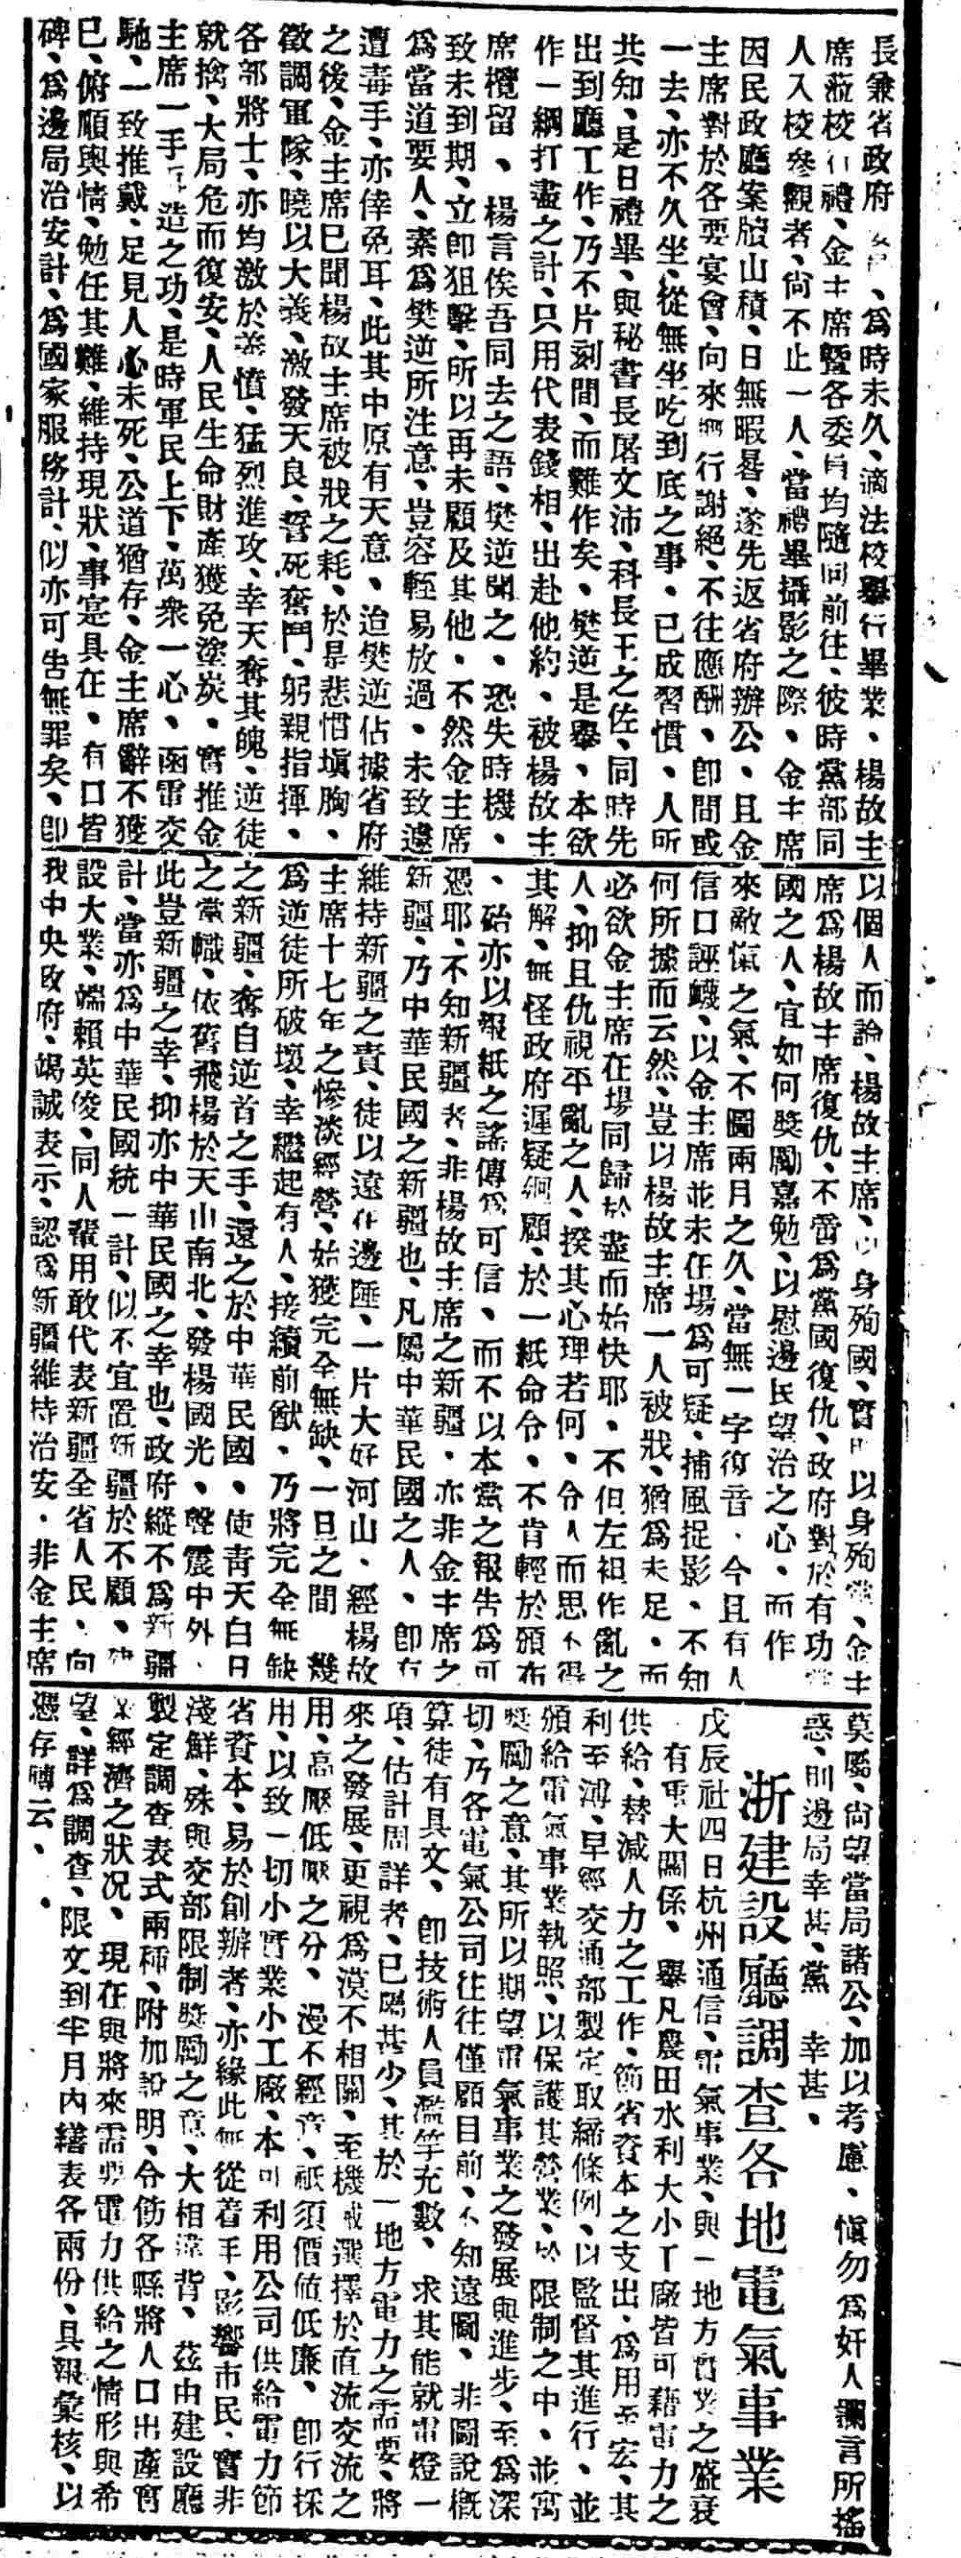 長兼省政府、爲時未久、適法校舉行畢業、楊故主
席蒞校行禮、金主席暨各委員均隨同前往、彼時黨部同
人入校參觀者、尙不止一人、當禮畢攝影之際、金主席
因民政廳案牘山積、日無暇晷、遂先返省府辦公、且金
主席對於各要宴會、向來興行謝絕、不往應酬、卽間或
一去、亦不久坐、從無坐吃到底之事、已成習慣、人所
共知、是日禮畢、與秘書長屠文沛、科長王之佐、同時先
出到廳工作、乃不片刻間、而難作矣、樊逆是舉、本欲
作一網打盡之計、只用代表錢相、出赴他約、被楊故主
席欖留、楊言俟吾同去之語、樊逆聞之、恐失時機、
致未到期、立卽狙擊、所以再未顧及其他、不然金主席
爲當道要人、素爲樊逆所注意、豈容輕易放過、未致遽
遭毒手、亦倖免耳、此其中原有天意、迨樊逆佔據省府
之後、金主席已聞楊故主席被戕之耗、於是悲憤塡胸、
徵調軍隊、曉以大義、激發天良、誓死奮鬥、躬親指揮、
各部將士、亦均激於義憤、猛烈進攻、幸天奪其魄、逆徒
就擒、大局危而復安、人民生命財產獲免塗炭、實推金
主席一手再造之功、是時軍民上下、萬衆一心、函電交
馳、一致推戴、足見人心未死、公道猶存、金主席辭不獲
已、俯順輿情、勉任其難、維持現狀、事實具在、有口皆
碑、爲邊局治安計、爲國家服務計、似亦可告無罪矣、卽
以個人而論、楊故主席、以身殉國、實則以身殉黨、金主
席爲楊故主席復仇、不啻爲黨國復仇、政府對於有功黨
國之人、宜如何獎勵嘉勉、以慰邊民望治之心、而作
來敵愾之氣、不圖兩月之久、當無一字復音、今且有人
信口誣衊、以金主席並未在場爲可疑、捕風捉影、不知
何所據而云然、豈以楊故主席一人被戕、猶爲未足、而
必欲金主席在場同歸於盡而始快耶、不但左袒作亂之
人、抑且仇視平亂之人、揆其心理若何、令人而思不得
其解、無怪政府遲疑綱顧、於一紙命令、不肯輕於頒布
、殆亦以報紙之謠傳爲可信、而不以本黨之報告爲可
憑耶、不知新疆者、非楊故主席之新疆、亦非金主席之
新疆、乃中華民國之新疆也、凡屬中華民國之人、卽有
維持新疆之責、徒以遠在邊陲、一片大好河山、經楊故
主席十七年之慘淡經營、始獲完全無缺、一旦之間、幾
爲逆徒所破壞、幸繼起有人、接續前猷、乃將完全無缺
之新疆、奪自逆首之手、還之於中華民國、使靑天白日
之黨幟、依舊飛楊於天山南北、發楊國光、聲震中外、
此豈新疆之幸、抑亦中華民國之幸也、政府縱不爲新疆
計、當亦爲中華民國統一計、似不宜置新疆於不顧、建
設大業、端賴英俊、同人輩用敢代表新疆全省人民、向
我中央政府、竭誠表示、認爲新疆維持治安、非金主席
莫屬、尙望當局諸公、加以考慮、愼勿爲奸人讕言所搖
惑、則邊局幸甚、黨幸甚、
浙建設廳調查各地電氣事業
戊辰社四日杭州通信、電氣事業、與一地方實業之盛衰
有重大關係、舉凡農田水利大小工廠皆可藉電力之
供給、替減人力之工作、節省資本之支出、爲用至宏、其
利至溥、早經交通部製定取締條例、以監督其進行、並
頒給電氣事業執照、以保護其營業、於限制之中、並寓
獎勵之意、其所以期望電氣事業之發展與進步、至爲深
切、乃各電氣公司往往僅顧目前、不知遠圖、非圖說概
算徒有具文、卽技術人員濫竽充數、求其能就電燈一
項、估計周詳者、已屬甚少、其於一地方電力之需要、將
來之發展、更視爲漠不相關、至機械選擇於直流交流之
用、高壓低壓之分、漫不經意、祇須價値低廉、卽行採
用、以致一切小實業小工廠、本可利用公司供給電力節
省資本、易於創辦者、亦緣此無從着手、影響市民、實非
淺鮮、殊與交部限制獎勵之意、大相違背、茲由建設廳
製定調查表式兩種、附加說明、令飭各縣將人口出產實
業經濟之狀況、現在與將來需要電力供給之情形與希
望、詳爲調查、限文到半月內繕表各兩份、具報彙核、以
憑存轉云、